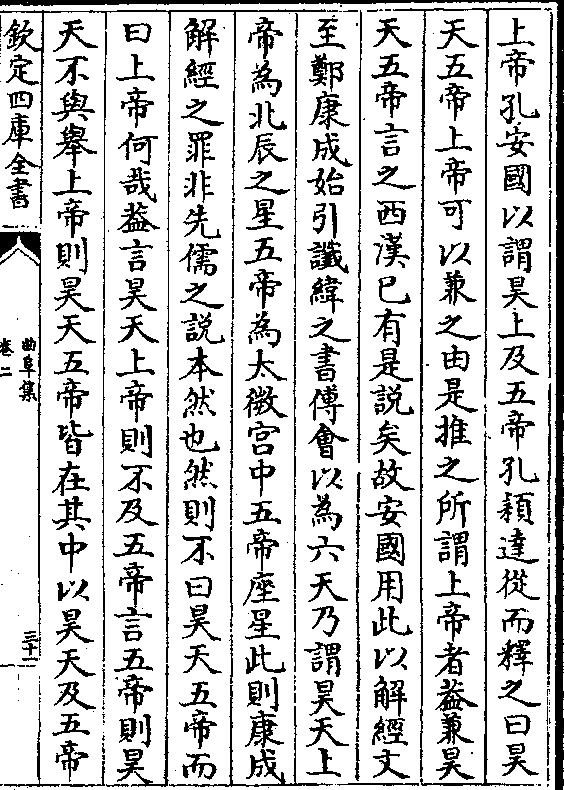 上帝孔安國以謂昊上及五帝孔穎達從而釋之曰昊
天五帝上帝可以兼之由是推之所謂上帝者葢兼昊
天五帝言之西漢已有是説矣故安國用此以解經文
至鄭康成始引讖緯之書傅會以為六天乃謂昊天上
帝為北辰之星五帝為太微宫中五帝座星此則康成
解經之罪非先儒之説本然也然則不曰昊天五帝而
曰上帝何哉葢言昊天上帝則不及五帝言五帝則昊
天不與舉上帝則昊天五帝皆在其中以昊天及五帝
欽定四庫全書
曲阜集
卷二
三十一